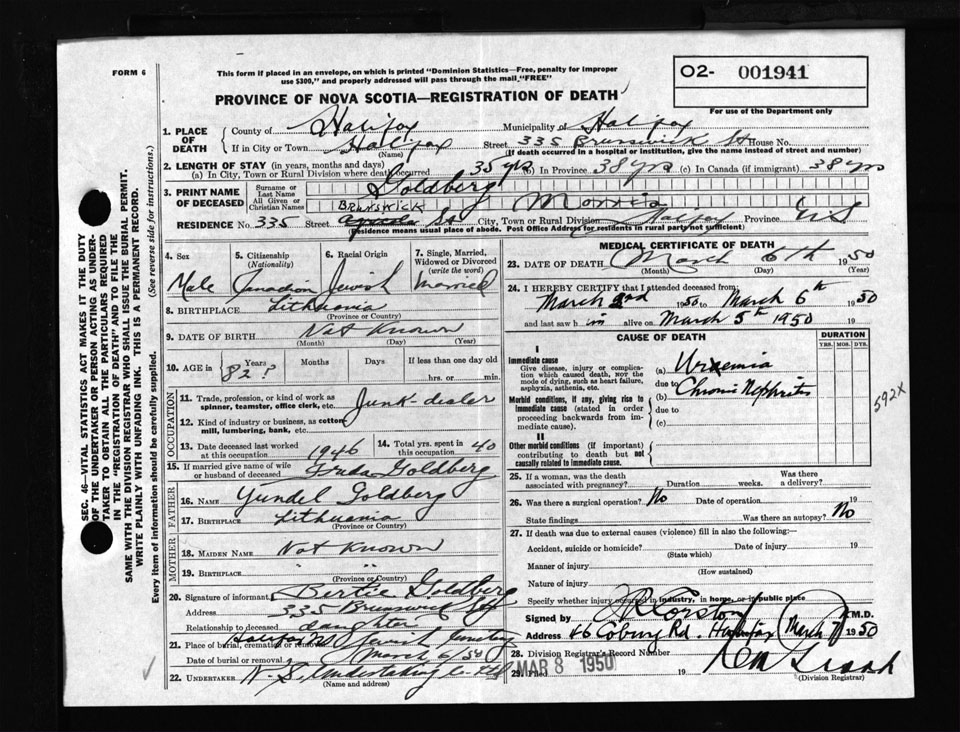 FORM 6
This form if placed in an envelope, on which is printed "Dominion Statistics—Free, penalty for improper
use $300," and properly addressed will pass through the mail "FREE"
O2- 001941
For use of the Department only
PROVINCE OF NOVA SCOTIA—REGISTRATION OF DEATH
1. PLACE OF DEATH
County of Halifax Municipality of Halifax
If in City or Town Halifax (Name) Street 335 Brunswick St House No.
(If death occurred in a hospital or institution, give the name instead of street and number)
2. LENGTH OF STAY (in years, months and days)
(a) In City, Town or Rural Division where death occurred 35 yrs (b) In Province 38 yrs (c) In Canada (if immigrant) 38 yrs
3. PRINT NAME OF DECEASED
Surname or Last Name Goldberg
All Given or Christian Names Morris
RESIDENCE No. 335 Street BRUNSWICK St City, Town or Rural Division Halifax Province NS
(Residence means usual place of abode. Post Office Address for residents in rural parts not sufficient)
4. Sex Male
5. Citizenship (Nationality) Canadian
6. Racial Origin Jewish
7. Single, Married, Widowed or Divorced (write the word) Married
8. BIRTHPLACE Lithuania
(Province or Country)
9. DATE OF BIRTH Not Known
(Month) (Day) (Year)
10. AGE in Years 82 ? Months Days If less than one day old
hrs. or min.
OCCUPATION
11. Trade, profession, or kind of work as spinner, teamster, office clerk, etc. Junk-dealer
12. Kind of industry or business, as cotton mill, lumbering, bank, etc.
13. Date deceased last worked at this occupation 1946
14. Total yrs. spent in this occupation 40
15. If married give name of wife or husband of deceased Goldberg
FATHER
16. NAME Yundel Goldberg
17. BIRTHPLACE Lithuania
(Province or Country)
MOTHER
18. MAIDEN NAME Not Known
19. BIRTHPLACE " "
(Province or Country)
20. Signature of informant Bertie Goldberg
Address 335 Brunswick St
Relationship to deceased daughter
21. Place of burial, cremation or removal Halifax NS Jewish Cemetery
Date of burial or removal March 6/50
22. UNDERTAKER N. S. Undertaking Co. Ltd
(Name and address)
MEDICAL CERTIFICATE OF DEATH
23. DATE OF DEATH March 6th 1950
(Month) (Day) (Year)
24. I HEREBY CERTIFY that I attended deceased from
March 2nd 1950 to March 6th 1950
and last saw him alive on March 5th 1950 19
CAUSE OF DEATH
DURATION
YRS. MOS. DYS.
I
Immediate cause
Give disease, injury or complication which caused death, not the mode of dying, such as heart failure, asphyxia, asthenia, etc.
(a) Uraemia
due to
Morbid conditions, if any, giving rise to immediate cause (stated in order proceeding backwards from immediate cause)
(b) Chronic Nephritis
due to
(c)
592X
II
Other morbid conditions (if important) contributing to death but not causally related to immediate cause.
25. If a woman, was the death associated with pregnancy? Duration weeks. Was there a delivery?
26. Was there a surgical operation? No Date of operation 19
State findings Was there an autopsy? No
27. If death was due to external causes (violence) fill in also the following:
Accident, suicide or homicide? Date of injury 19
(State which)
Manner of injury
(How sustained)
Nature of injury
Specify whether injury occurred in industry, in home, or in public place
Signed by M.D.
Address 46 Coburg Rd. Halifax March 7 1950
28. Division Registrar's Record Number
29. Filed MAR 8 1950 19
(Division Registrar)
SEC. 46—VITAL STATISTICS ACT MAKES IT THE DUTY
OF THE UNDERTAKER OR PERSON ACTING AS UNDER-
TAKER TO OBTAIN ALL THE PARTICULARS REQUIRED
IN THE "REGISTRATION OF DEATH" AND TO FILE THE
SAME WITH THE DIVISION REGISTRAR WHO SHALL ISSUE THE BURIAL PERMIT.
WRITE PLAINLY WITH UNFADING INK. THIS IS A PERMANENT RECORD.
Every item of information should be carefully supplied. (See reverse side for instructions.)